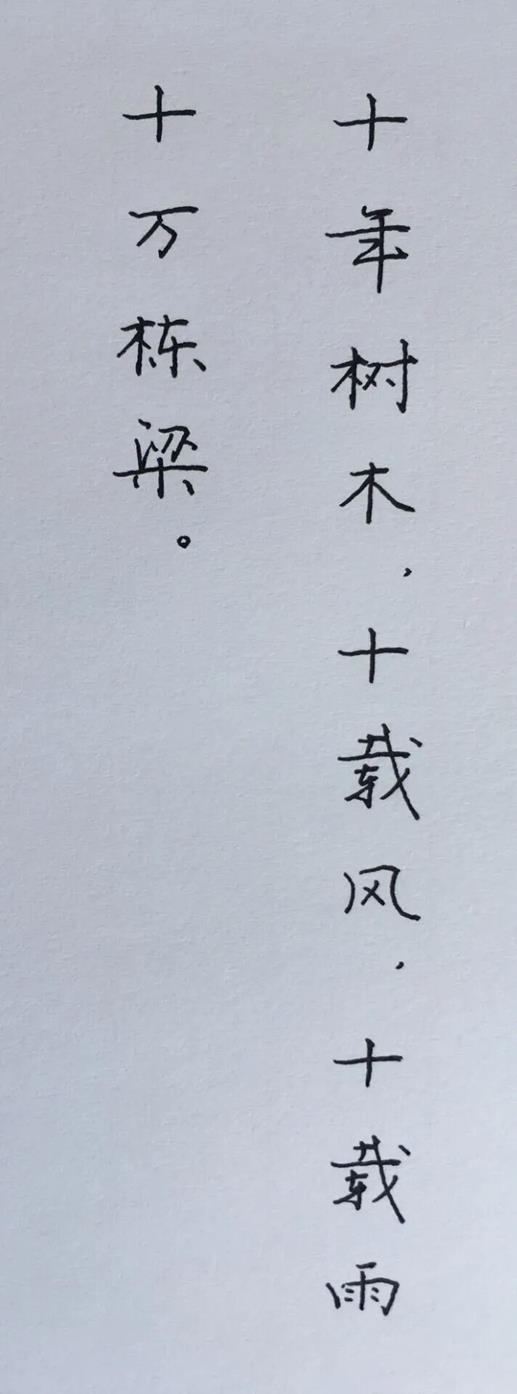 十年树木，十载风，十载雨
十万栋梁。